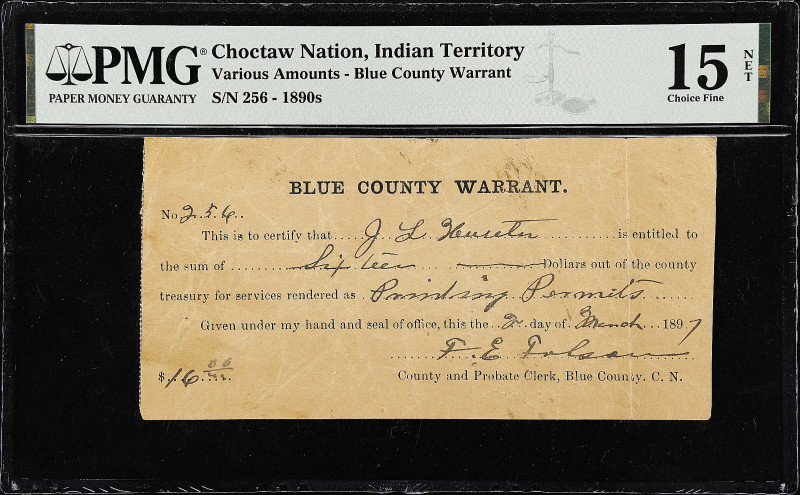 PMG® Choctaw Nation, Indian Territory
PAPER MONEY GUARANTY
Various Amounts - Blue County Warrant
S/N 256 - 1890s
15 NET
Choice Fine
BLUE COUNTY WARRANT.
No 256..
This is to certify that.....J. L. ...........is entitled to
the sum of .........Sixteen... ............Dollars out of the county
treasury for services rendered as ..Printing Permits......
Given under my hand and seal of office, this the..2..day of..March...1897
......F. E. Folsom......
$16.00
County and Probate Clerk, Blue County. C. N.